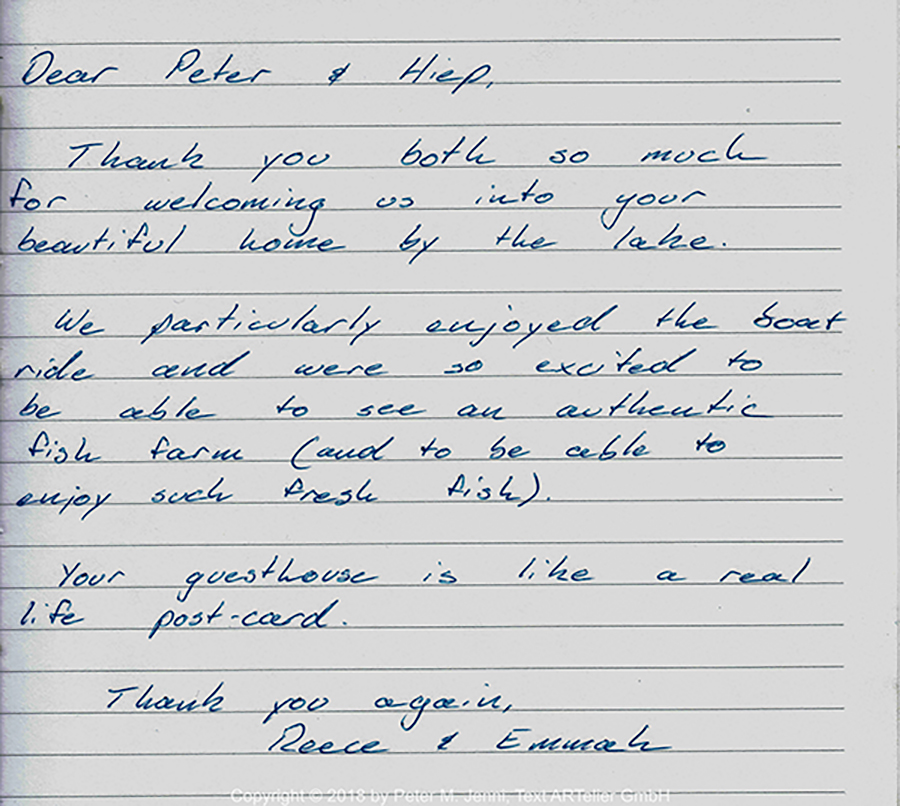 Dear Peter & Hiep,
Thank you both so much
for welcoming us into your
beautiful home by the lake.
We particularly enjoyed the boat
ride and were so excited to
be able to see an authentic
fish farm (and to be able to
enjoy such fresh fish).
Your guesthouse is like a real
life post-card.
Thank you again,
Reece & Emmah
Copyright © 2018 by Peter M. Jenni, Text ARTelier GmbH